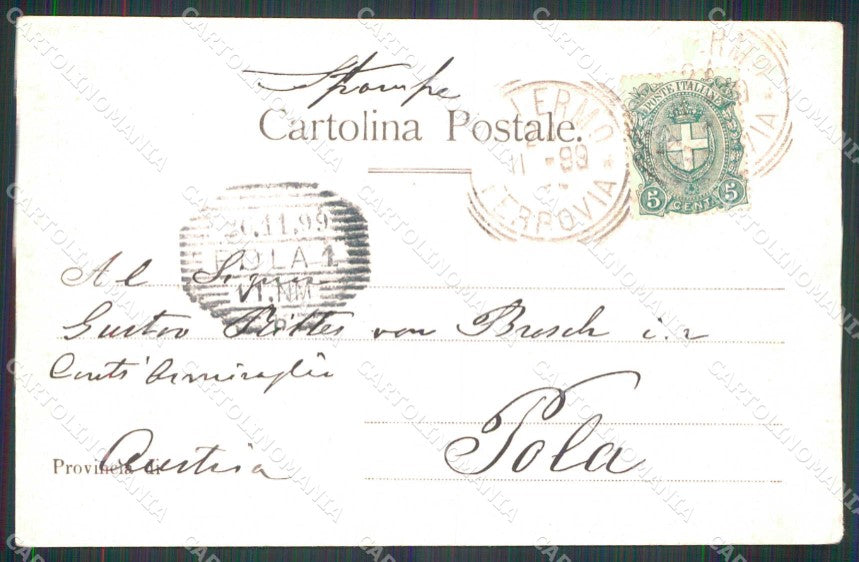 Stampe
Cartolina Postale.
PALERMO
XI -99
FERROVIA
POSTE ITALIANE
5 CENT. 5
26.11.99
POLA 1
VI. NM
Al Signor
Gustav Rittes von Brosch i.r
Cont' Amiraglio
Pola
Provincia di Austria
CARTOLINOMANIA